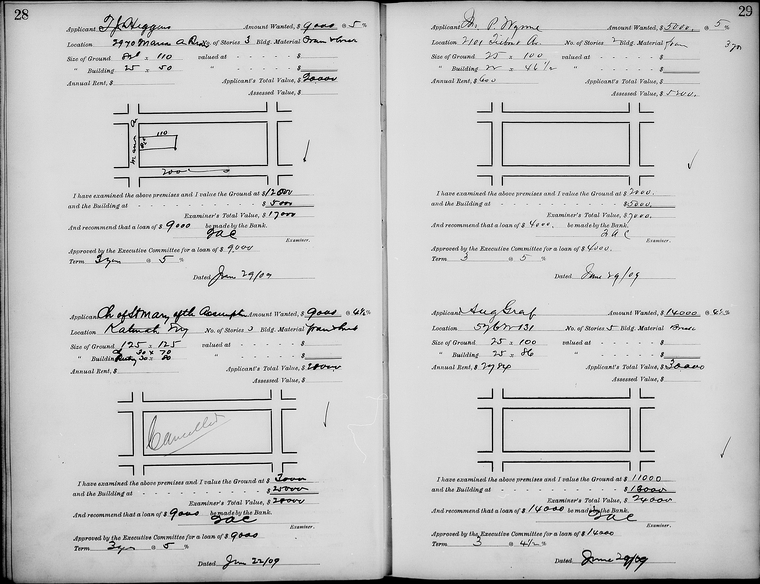 28
Applicant T J Higgins Amount Wanted, $ 9000 @ 5 %
Location 2970 Marion Av. No. of Stories 3 Bldg. Material
Size of Ground x 110 valued at - - - - $
" Building 25 x 50 " - - - - $
Annual Rent, $ Applicant's Total Value, $ 20000
Assessed Value, $
110
200
I have examined the above premises and I value the Ground at $ 12000
and the Building at - - - - - - - $ 5000
Examiner's Total Value, $ 17000
And recommend that a loan of $ 9000 be made by the Bank.
Examiner.
Approved by the Executive Committee for a loan of $ 9000
Term 3 yrs @ 5 %
Dated June 29/09
Applicant Ch of St Mary of the Amount Wanted, $ 9000 @ 4½ %
Location Katonah No. of Stories 3 Bldg. Material
Size of Ground 125 x 125 valued at - - - - $
" Building 30 x 70 " - - - - $
Annual Rent, $ Applicant's Total Value, $ 28000
Assessed Value, $
Cancelled
I have examined the above premises and I value the Ground at $ 3000
and the Building at - - - - - - - $ 25000
Examiner's Total Value, $ 28000
And recommend that a loan of $ 9000 be made by the Bank.
Examiner.
Approved by the Executive Committee for a loan of $ 9000
Term 3 yrs @ 5 %
Dated Jun 22/09
29
Applicant P. Wynne Amount Wanted, $ 5000. @ 5 %
Location 2101 Tiebout Av. No. of Stories 2 Bldg. Material 3 yrs
Size of Ground 25 x 100 valued at - - - - $
" Building 22 x 46½ " - - - - $
Annual Rent, $ 600 Applicant's Total Value, $
Assessed Value, $ 5200.
I have examined the above premises and I value the Ground at $ 2000.
and the Building at - - - - - - - $ 5000.
Examiner's Total Value, $ 7000.
And recommend that a loan of $ 4000. be made by the Bank.
Examiner.
Approved by the Executive Committee for a loan of $ 4000.
Term 3 @ 5 %
Dated June 29/09
Applicant Aug Graf Amount Wanted, $ 14000 @ 4½ %
Location 526 W 131 No. of Stories 5 Bldg. Material Brick
Size of Ground 25 x 100 valued at - - - - $
" Building 25 x 86 " - - - - $
Annual Rent, $ 2984 Applicant's Total Value, $ 30000
Assessed Value, $
I have examined the above premises and I value the Ground at $ 11000
and the Building at - - - - - - - $ 13000
Examiner's Total Value, $ 24000
And recommend that a loan of $ 14000 be made by the Bank.
Examiner.
Approved by the Executive Committee for a loan of $ 14000
Term 3 @ 4½ %
Dated June 29/09